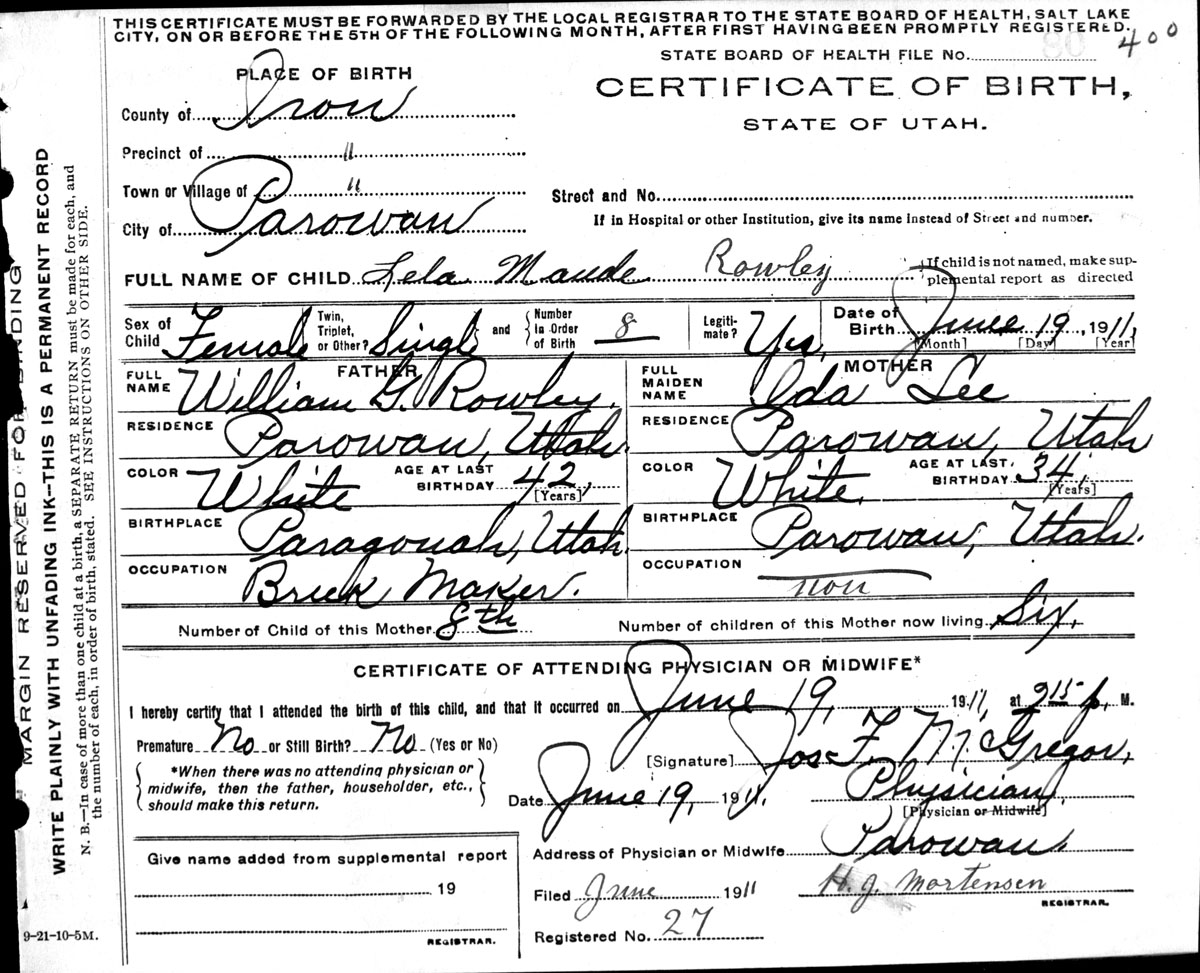 THIS CERTIFICATE MUST BE FORWARDED BY THE LOCAL REGISTRAR TO THE STATE BOARD OF HEALTH, SALT LAKE
CITY, ON OR BEFORE THE 5TH OF THE FOLLOWING MONTH, AFTER FIRST HAVING BEEN PROMPTLY REGISTERED.
STATE BOARD OF HEALTH FILE No. 80 400
PLACE OF BIRTH
CERTIFICATE OF BIRTH,
STATE OF UTAH.
County of Iron
Precinct of "
Town or Village of "
Street and No.
City of Parowan
If in Hospital or other Institution, give its name instead of Street and number.
FULL NAME OF CHILD Lela Maude Rowley
{ If child is not named, make sup-
plemental report as directed
Sex of Child Female
Twin, Triplet, or Other? Singl } and { Number in Order of Birth 8
Legiti-mate? Yes,
Date of Birth June 19, 1911,
[Month] [Day] [Year]
FATHER
FULL NAME William G. Rowley.
MOTHER
FULL MAIDEN NAME Ida Lee
RESIDENCE Parowan, Utah.
RESIDENCE Parowan, Utah
COLOR White AGE AT LAST BIRTHDAY 42, [Years]
COLOR White, AGE AT LAST BIRTHDAY 34, [Years]
BIRTHPLACE Paragonah, Utah.
BIRTHPLACE Parowan, Utah.
OCCUPATION Brick Maker.
OCCUPATION non
Number of Child of this Mother 8th
Number of children of this Mother now living Six,
CERTIFICATE OF ATTENDING PHYSICIAN OR MIDWIFE*
I hereby certify that I attended the birth of this child, and that it occurred on June 19, 1911, at 2 15 p. M.
Premature No or Still Birth? No (Yes or No)
[Signature] Jos F. McGregor,
{ *When there was no attending physician or
midwife, then the father, householder, etc.,
should make this return. }
Date June 19, 1911. Physician,
[Physician or Midwife]
Give name added from supplemental report
19
REGISTRAR.
Address of Physician or Midwife Parowan.
Filed June 1911 H. J. Mortensen
REGISTRAR.
Registered No. 27
MARGIN RESERVED FOR BINDING
WRITE PLAINLY WITH UNFADING INK—THIS IS A PERMANENT RECORD
N. B.—In case of more than one child at a birth, a SEPARATE RETURN must be made for each, and
the number of each, in order of birth, stated. SEE INSTRUCTIONS ON OTHER SIDE.
9-21-10-5M.